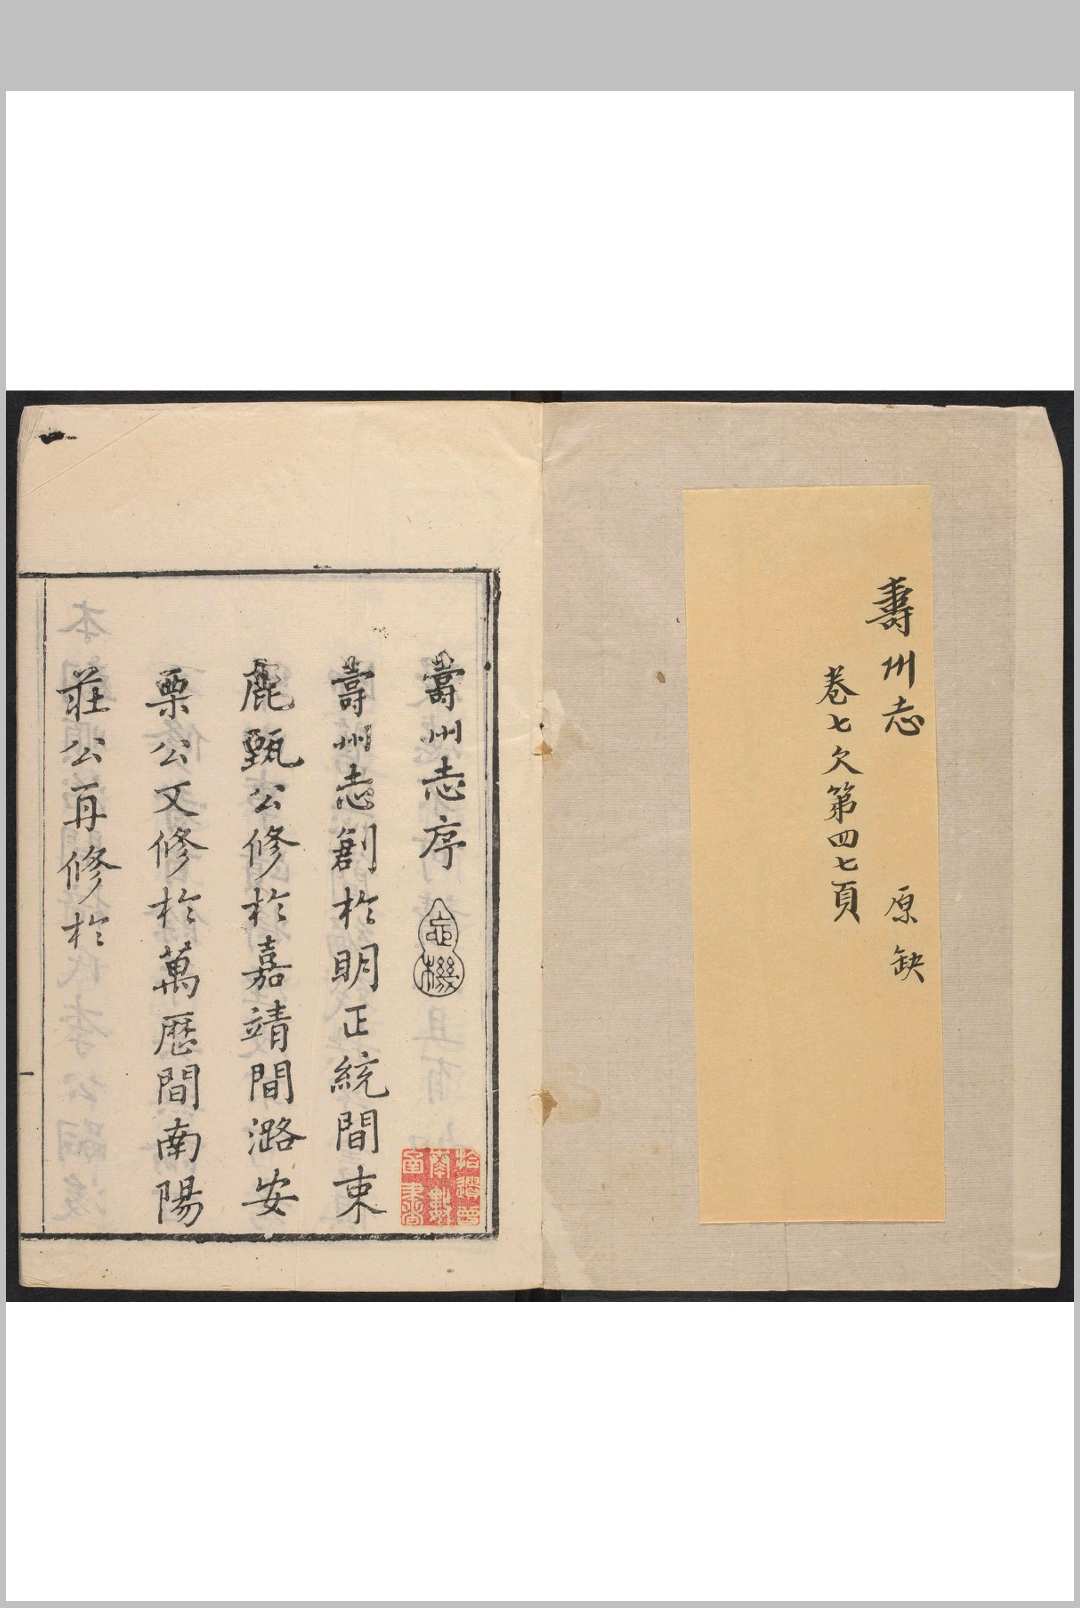 壽州志
原缺
卷七欠第四七頁
壽州志序
忘機
壽州志創於明正統間束
鹿甄公修於嘉靖間潞安
栗公又修於萬歷間南陽
莊公再修於